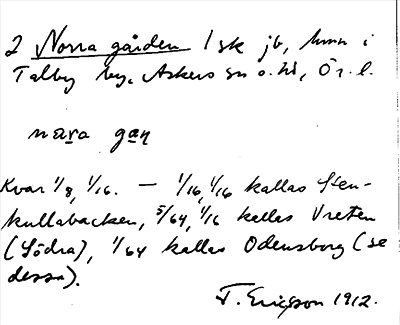 2 Norra gården 1 sk jb, hmn i
Talby by, Askers sn o. hd, Ör. l.
nara gaɳ
Kvar 1/8, 1/16. — 1/16, 1/16 kallas Sten-
kullabacken, 5/64, 1/16 kallas Vreten
(Södra), 1/64 kallas Odensborg (se
dessa).
T. Ericsson 1912.